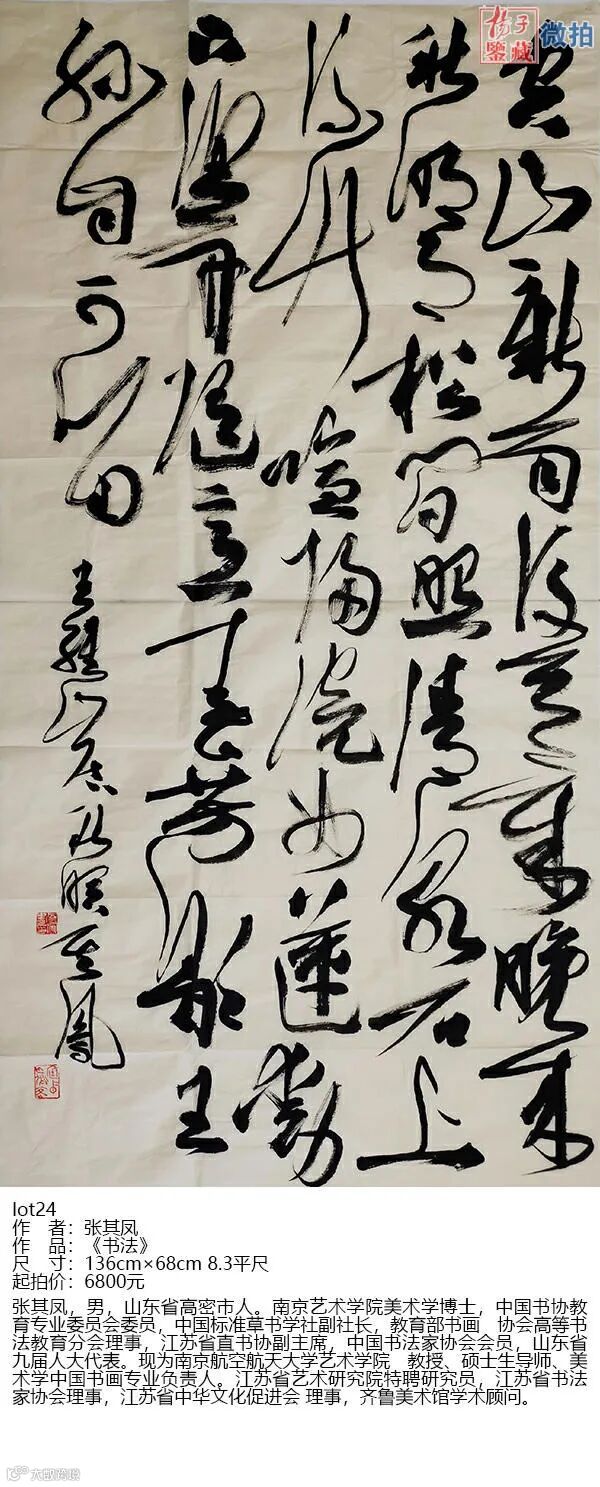 杨子
鉴藏
微拍
空山新雨後天氣晚來
秋明月松間照清泉石上
流竹喧歸浣女蓮動
下漁舟隨意春芳歇王
孫自可留
王維山居秋暝其鳳
lot24
作 者：张其凤
作 品：《书法》
尺 寸：136cm×68cm 8.3平尺
起拍价：6800元
张其凤，男，山东省高密市人。南京艺术学院美术学博士，中国书协教
育专业委员会委员，中国标准草书学社副社长，教育部书画 协会高等书
法教育分会理事，江苏省直书协副主席，中国书法家协会会员，山东省
九届人大代表。现为南京航空航天大学艺术学院 教授、硕士生导师、美
术学中国书画专业负责人。江苏省艺术研究院特聘研究员，江苏省书法
家协会理事，江苏省中华文化促进会 理事，齐鲁美术馆学术顾问。
大欧跨境